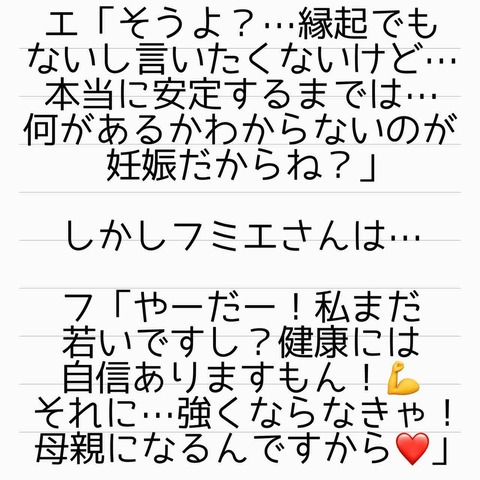 エ「そうよ？…縁起でも
ないし言いたくないけど…
本当に安定するまでは…
何があるかわからないのが
妊娠だからね？」
しかしフミエさんは…
フ「やーだー！私まだ
若いですし？健康には
自信ありますもん！💪
それに…強くならなきゃ！
母親になるんですから❤️」